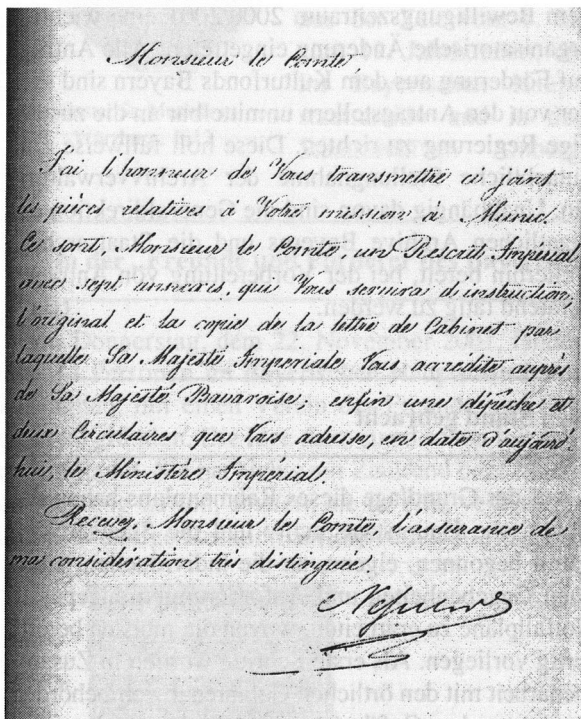 Monsieur le Comte,
J'ai l'honneur de Vous transmettre ci joint
les pièces relatives à Votre mission à Munic
Ce sont, Monsieur le Comte, un Rescrit Impérial
avec sept annexes, qui Vous servira d'instruction,
l'original et la copie de la lettre de Cabinet par
laquelle Sa Majesté Impériale Vous accrédite auprès
de Sa Majesté Bavaroise; enfin une dépêche et
deux Circulaires que Vous adresse, en date d'aujourd'
hui, le Ministère Impérial.
Recevez, Monsieur le Comte, l'assurance de
ma considération très distinguée